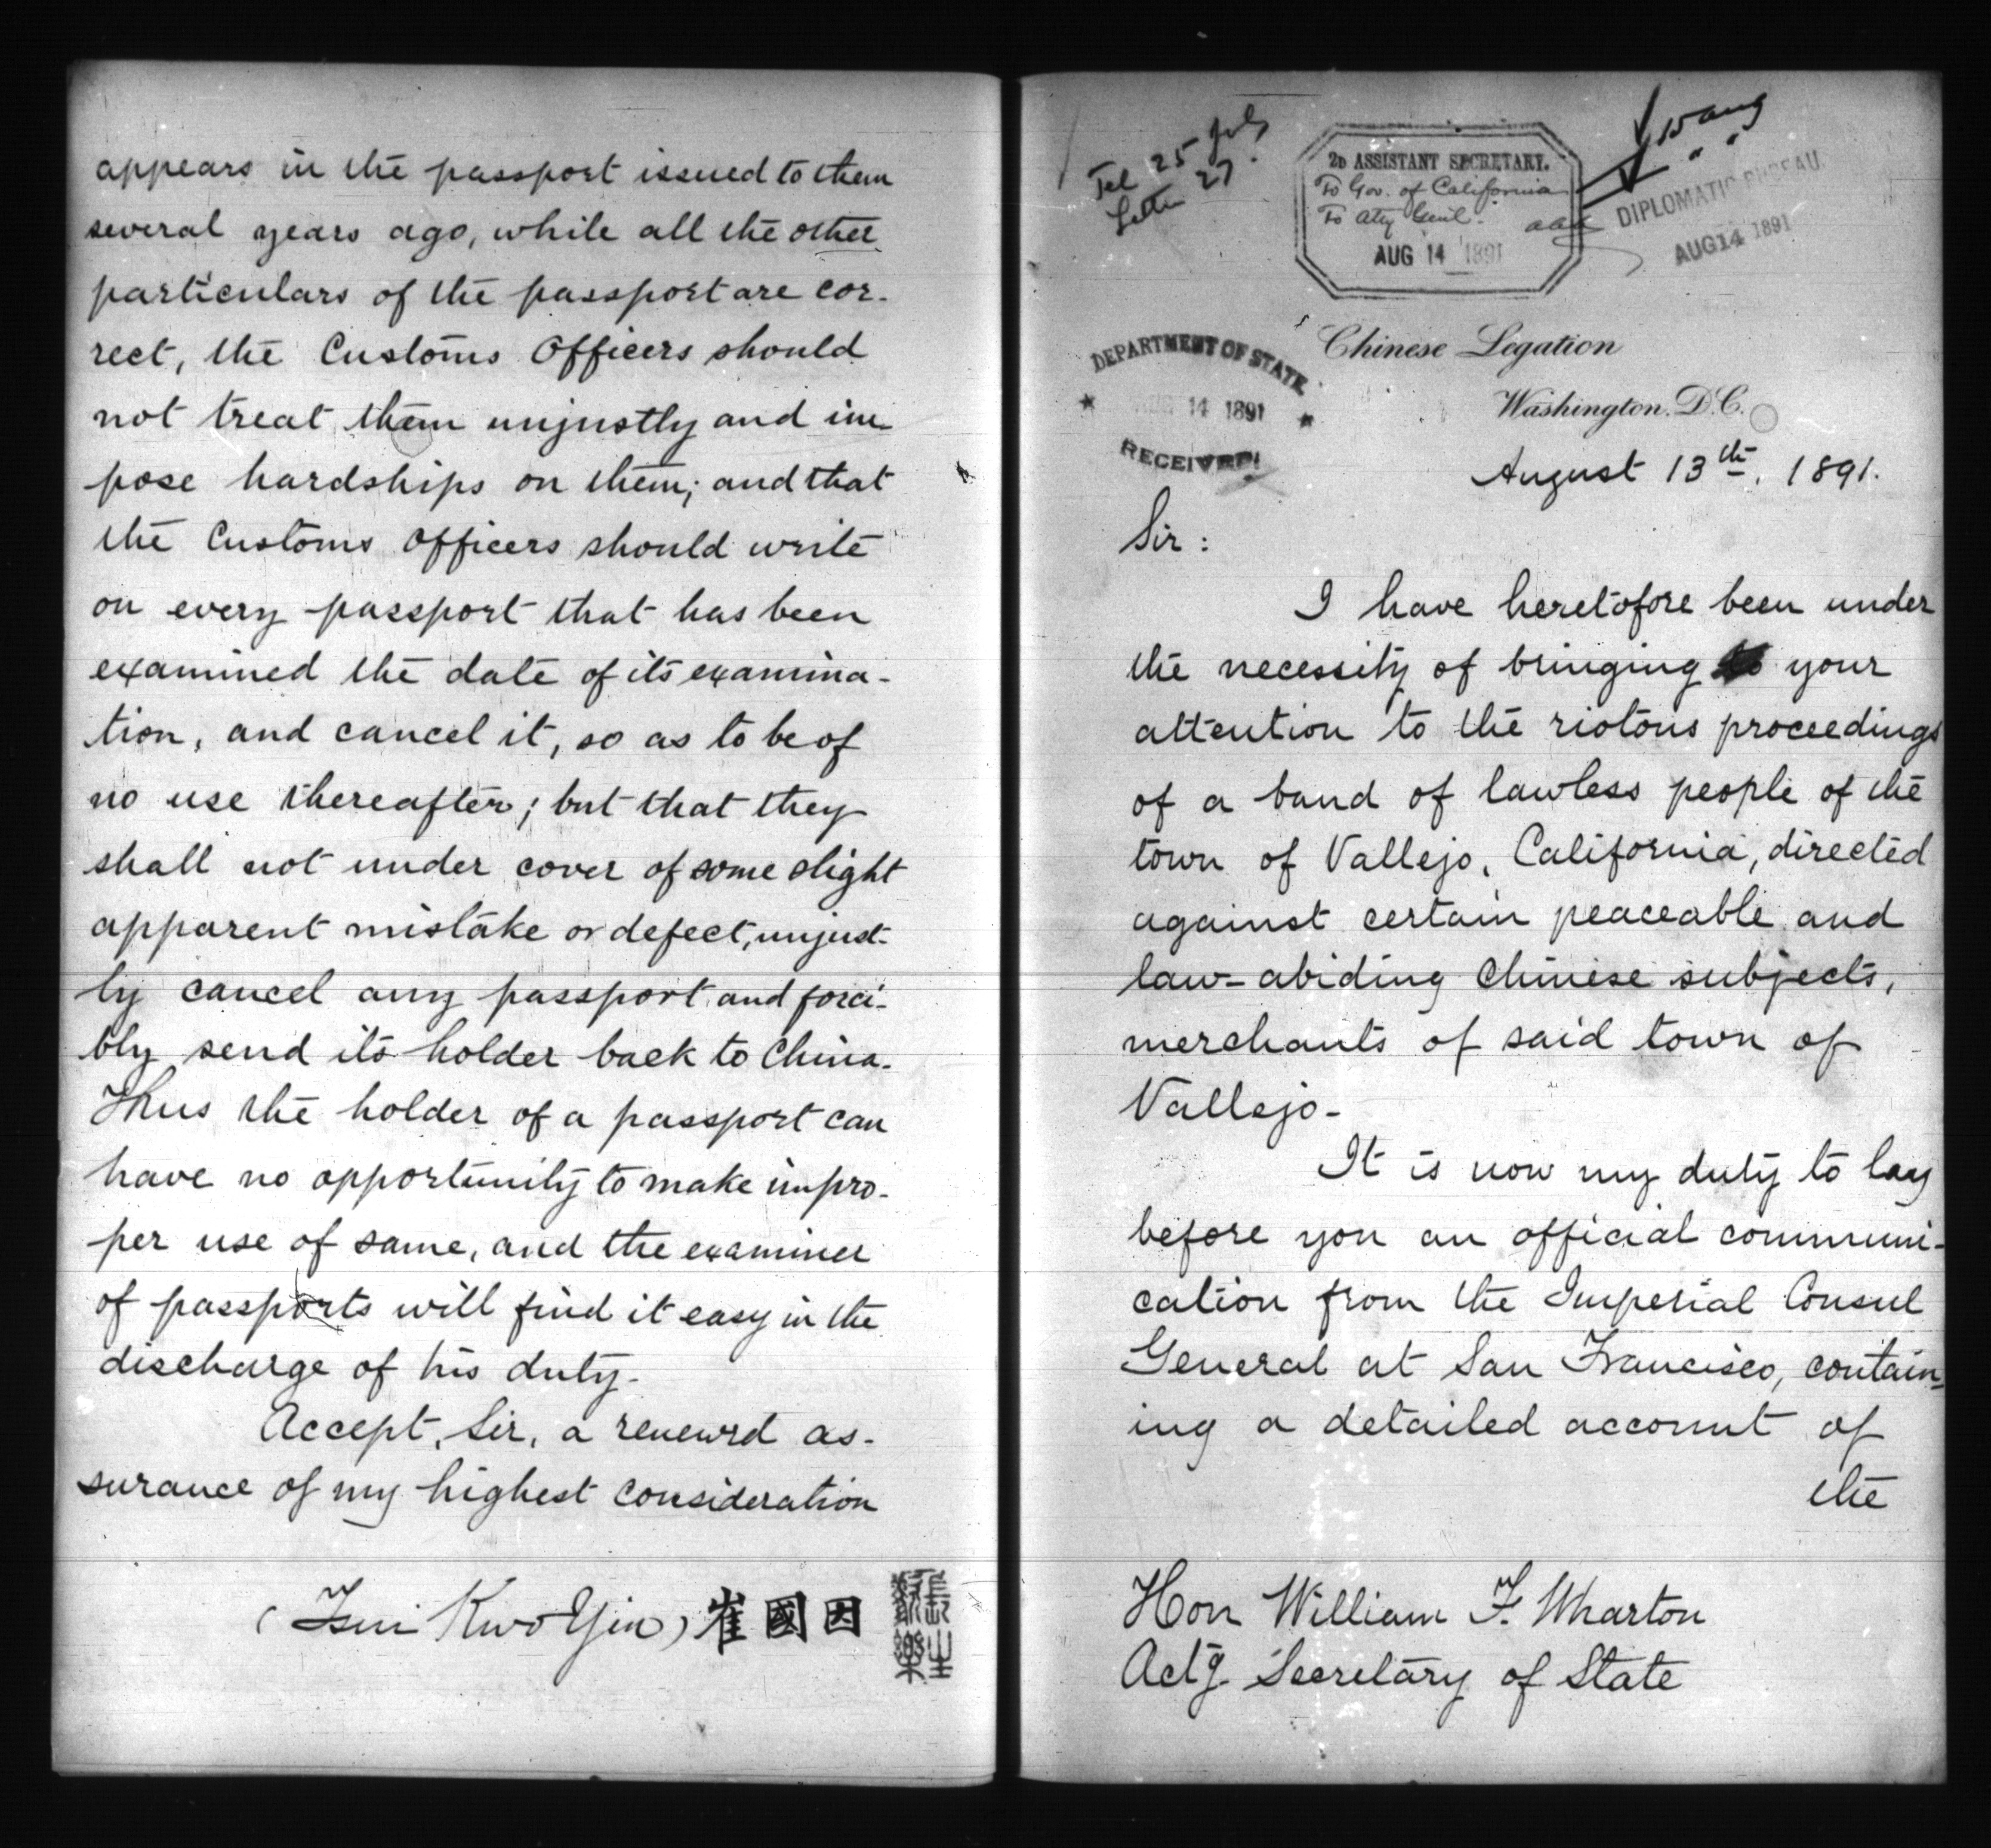 appears in the passport issued to them
several years ago, while all the other
particulars of the passport are cor-
rect, the Customs Officers should
not treat them unjustly and im
pose hardships on them; and that
the Customs Officers should write
on every passport that has been
examined the date of its examina-
tion, and cancel it, so as to be of
no use thereafter; but that they
shall not under cover of some slight
apparent mistake or defect, unjust-
ly cancel any passport and forci-
bly send its holder back to China.
Thus the holder of a passport can
have no opportunity to make impro-
per use of same, and the examiner
of passports will find it easy in the
discharge of his duty.
Accept, Sir, a renewed as-
surance of my highest consideration
(Tsui Kwo Yin) 崔國因
Tel 25 July
Letter 27.
2D ASSISTANT SECRETARY.
To Gov. of California
To Atty Genl.
AUG 14 1891
15 Aug
" "
DIPLOMATIC BUREAU
AUG 14 1891
DEPARTMENT OF STATE
AUG 14 1891
RECEIVED
Chinese Legation
Washington, D.C.
August 13th, 1891.
Sir:
I have heretofore been under
the necessity of bringing to your
attention to the riotous proceedings
of a band of lawless people of the
town of Vallejo, California, directed
against certain peaceable and
law-abiding Chinese subjects,
merchants of said town of
Vallejo-
It is now my duty to lay
before you an official communi-
cation from the Imperial Consul
General at San Francisco, contain-
ing a detailed account of
the
Hon William F. Wharton
Actg. Secretary of State